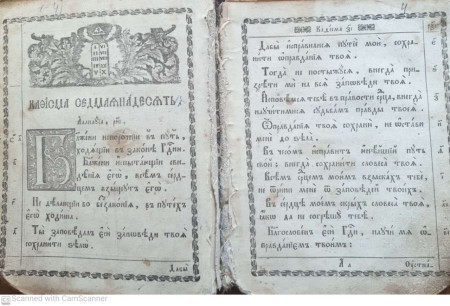 КАѲІСМА СЕДМАЯНАДЕСЯТЬ
Блажени непорочнїи въ путь,
ходящїи въ законѣ Гдни.
Блажени испытающїи сви
дѣнїя егѡ, всѣмъ сер
цемъ взыщутъ егѡ.
Не дѣлающїи бо беззаконїя, въ путехъ
егѡ ходиша.
Ты заповѣдалъ еси заповѣди твоя
сохранити ѕѣлѡ.
Дабы
Каѳїсма зі
Дабы исправилися путїе мои, сохра
нити ѡправданїя твоя.
Тогда не постыжуся, внегда при
зрѣти ми на всѧ заповѣди твоя.
Исповѣмся тебѣ въ правости срца, внегда
научитимися судьбамъ правды твоея.
Ѡправданїя твоя сохраню, не ѡстави
мене до ѕѣла.
Въ чесомъ исправитъ юнѣйшїй путь
свой: внегда сохранити словеса твоя.
Всѣмъ срцемъ моимъ взыскахъ тебе,
не ѿрини мене ѿ заповѣдей твоихъ.
Въ срдцѣ моемъ скрыхъ словеса твоя,
яко да не согрѣшу тебѣ.
Благословенъ еси Гди, научи мя ѡ
правданїемъ твоимъ:
Устнама
Scanned with CamScanner